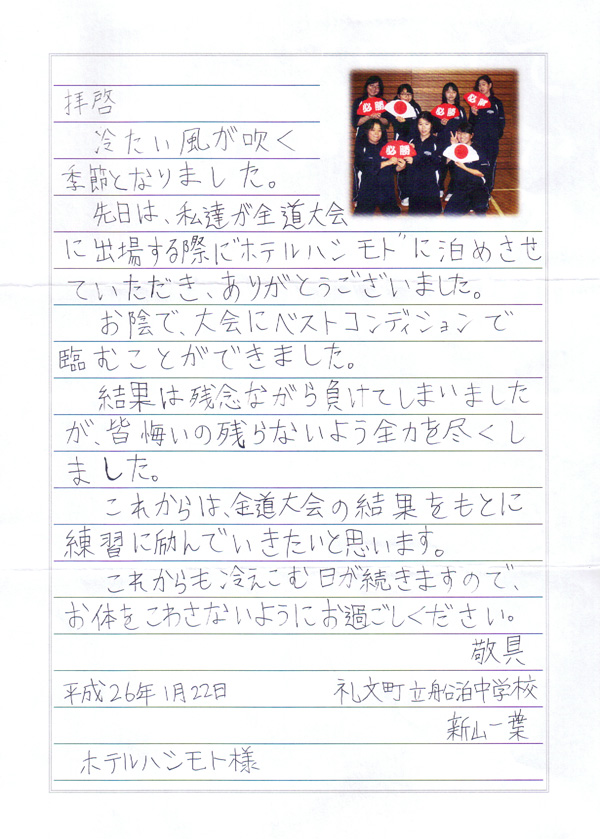 拝啓
冷たい風が吹く
季節となりました。
先日は、私達が全道大会
に出場する際に"ホテルハシモト"に泊めさせ
ていただき、ありがとうございました。
お陰で、大会にベストコンディションで
臨むことができました。
結果は残念ながら負けてしまいました
が、皆悔いの残らないよう全力を尽くし
ました。
これからは、全道大会の結果をもとに
練習に励んでいきたいと思います。
これからも冷えこむ日が続きますので、
お体をこわさないようにお過ごしください。
敬具
平成26年1月22日 礼文町立船泊中学校
新山一葉
ホテルハシモト様
必勝
必勝
必勝
必勝